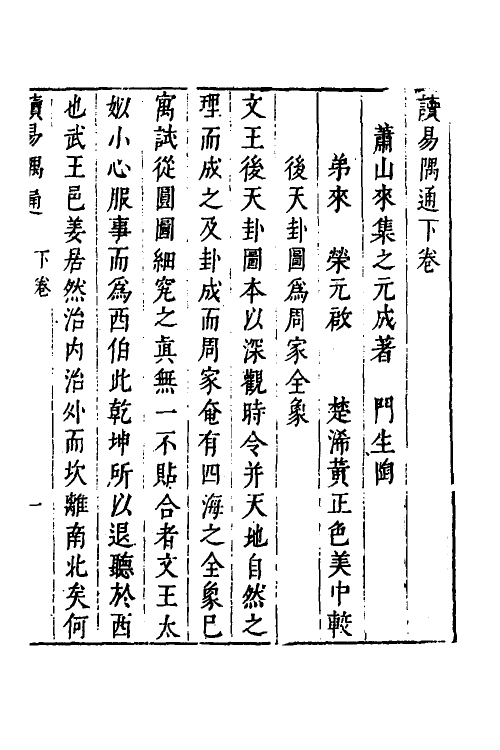 讀易隅通下卷
蕭山來集之元成著　門生陶
弟來　榮元啟　楚浠黃正色美中較
後天卦圖為周家全象
文王後天卦圖本以深觀時令并天地自然之
理而成之及卦成而周家奄有四海之全象已
寓試從圓圖細究之真無一不貼合者文王太
姒小心服事而為西伯此乾坤所以退聽於西
也武王邑姜居然治內治外而坎離南北矣何
讀易隅通　下卷　一